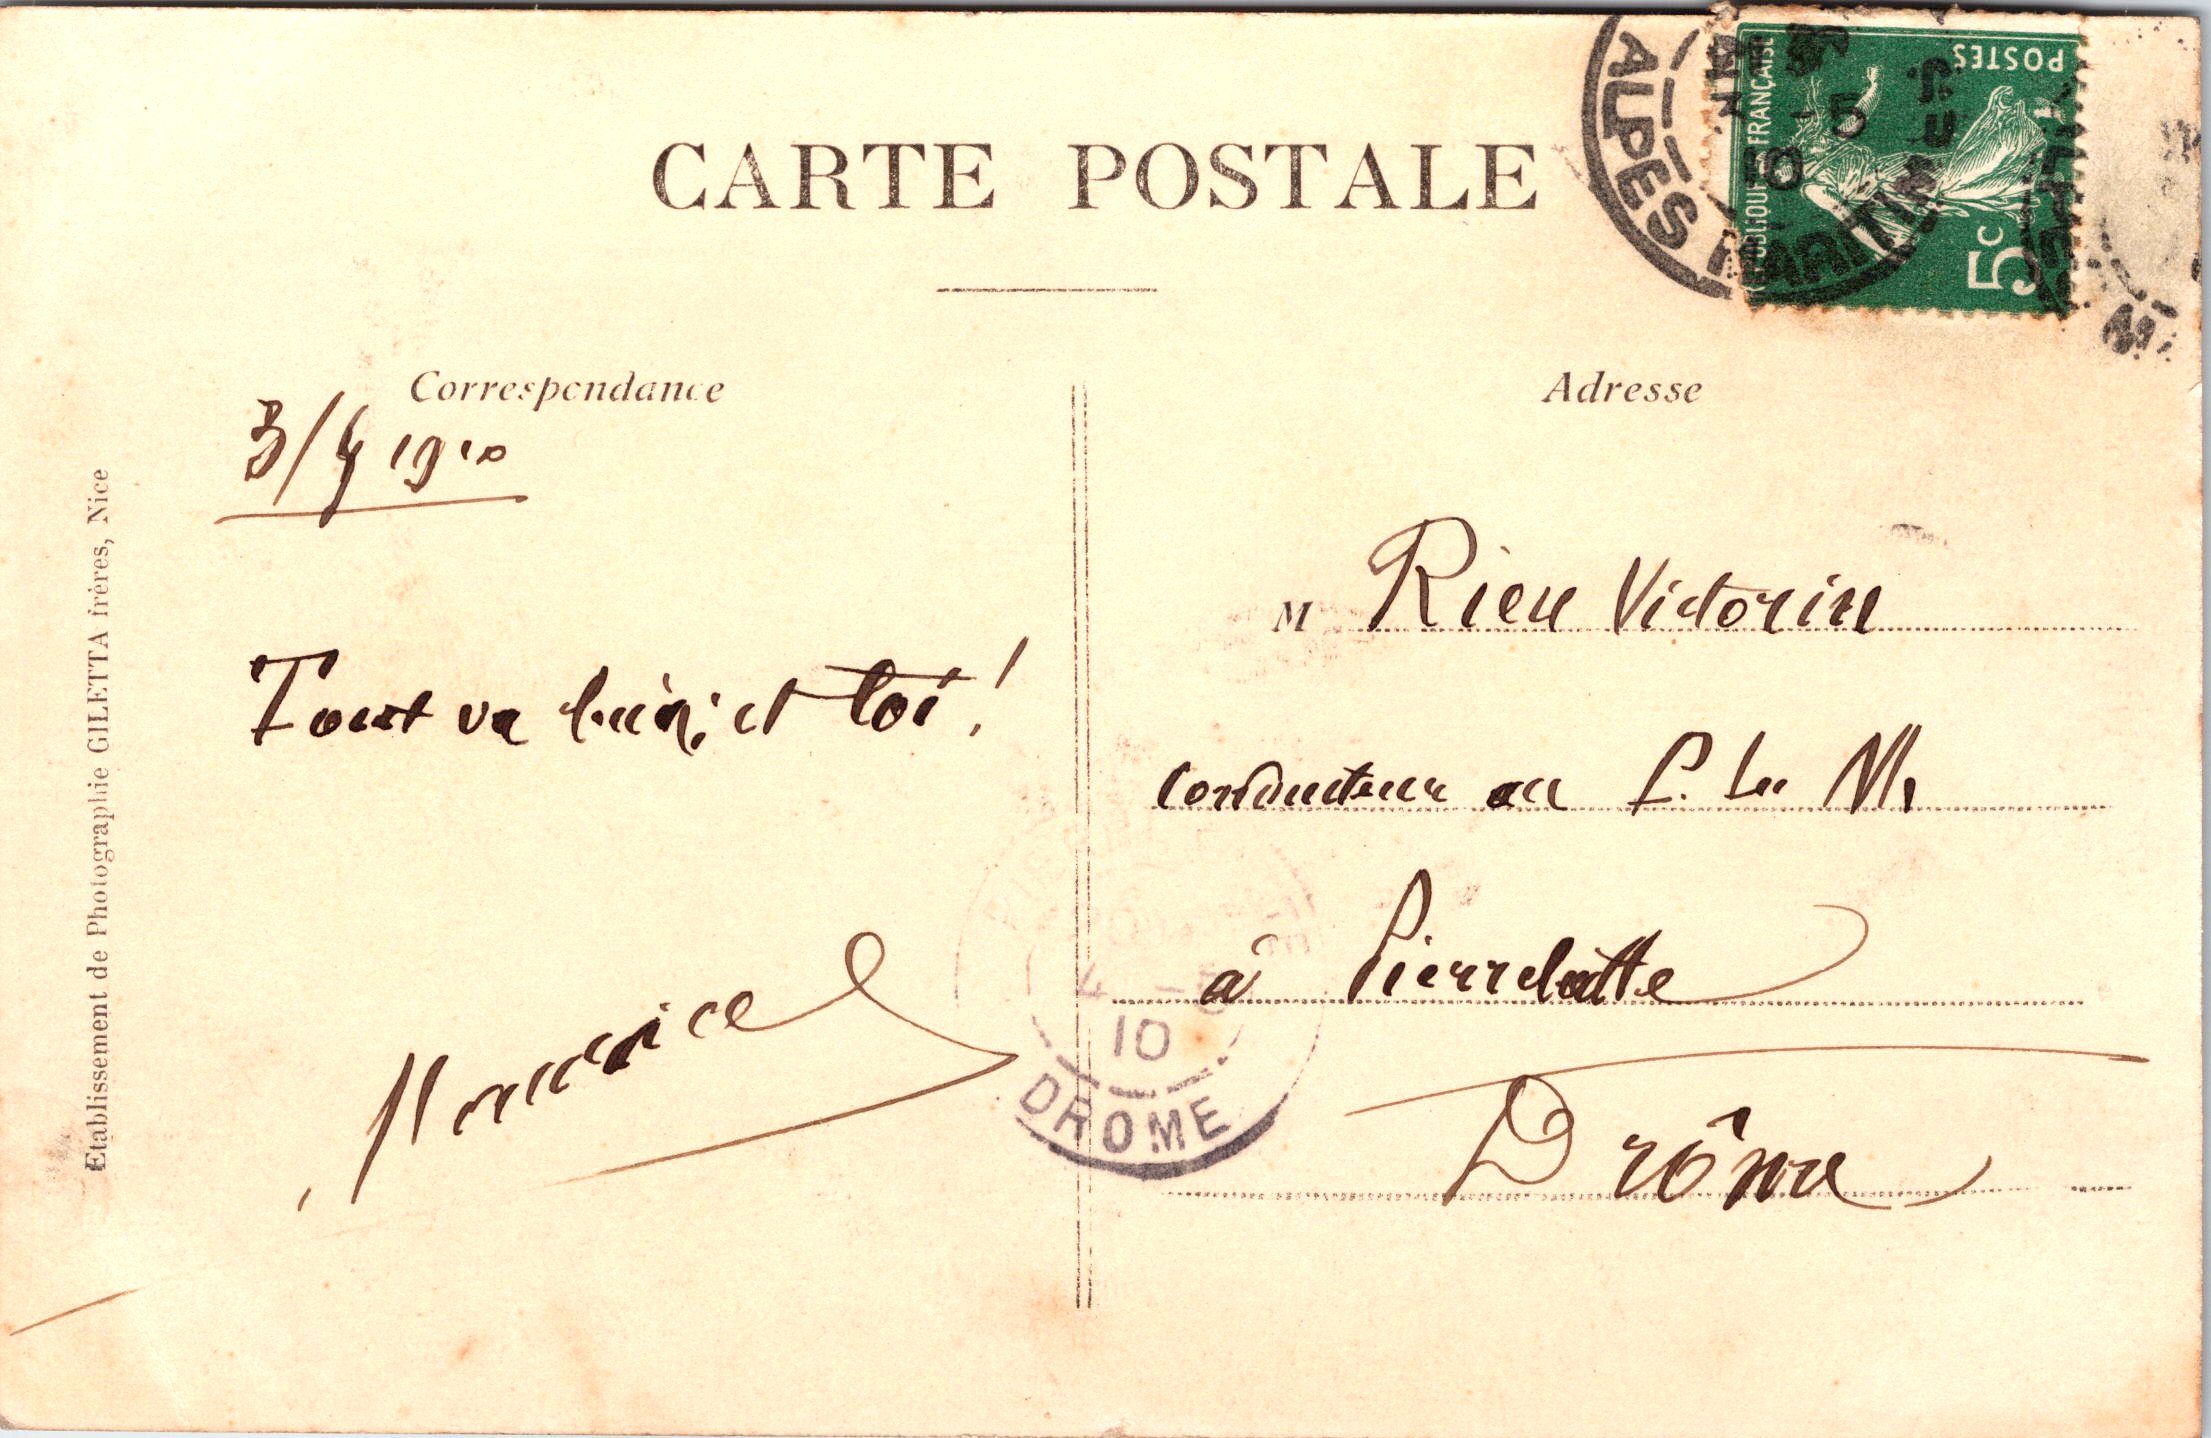 CARTE POSTALE
POSTES
RÉPUBLIQUE FRANÇAISE
5c
ALPES MARITIMES
5
10
Correspondance
Adresse
3/4 1910
Tout va bien; et toi!
Maurice
M Rieu Victorin
Conducteur au P. L. M.
à Pierrelatte
Drôme
4
10
DROME
Etablissement de Photographie GILETTA frères, Nice